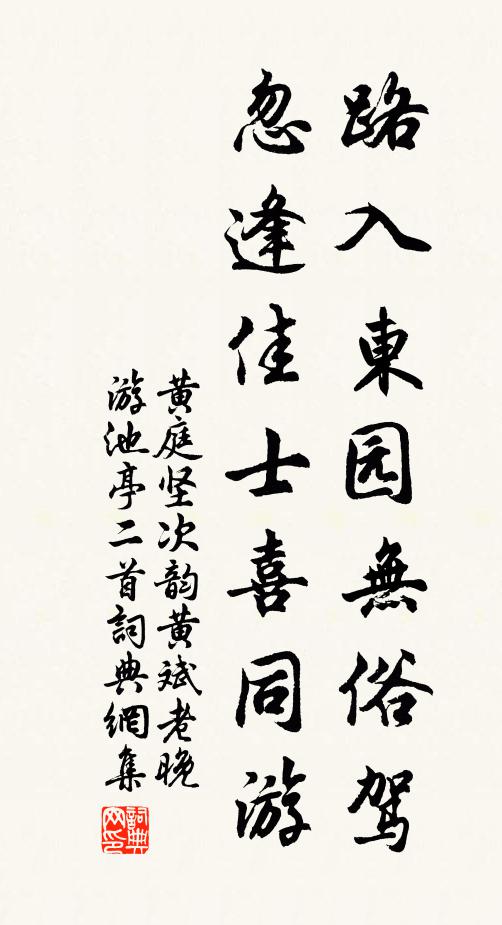 路入東园無俗驾
忽逢佳士喜同游
黄庭坚次韵黄斌老晚
游池亭二首詞典網集
詞典
网印